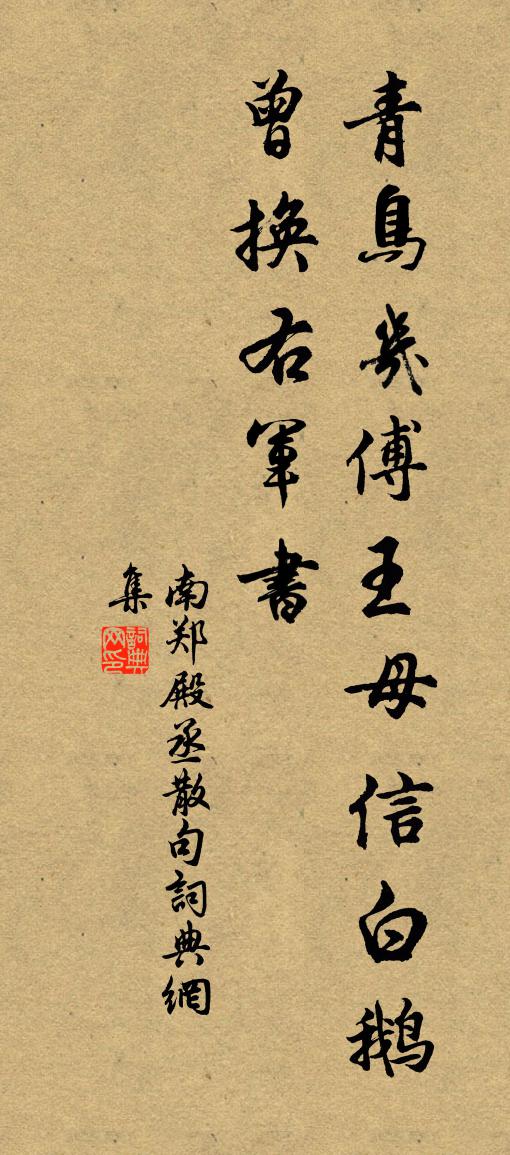 青鳥幾傅王母信白鵝
曾換右軍書
南郑殿丞散句詞典網
集
詞典
网印